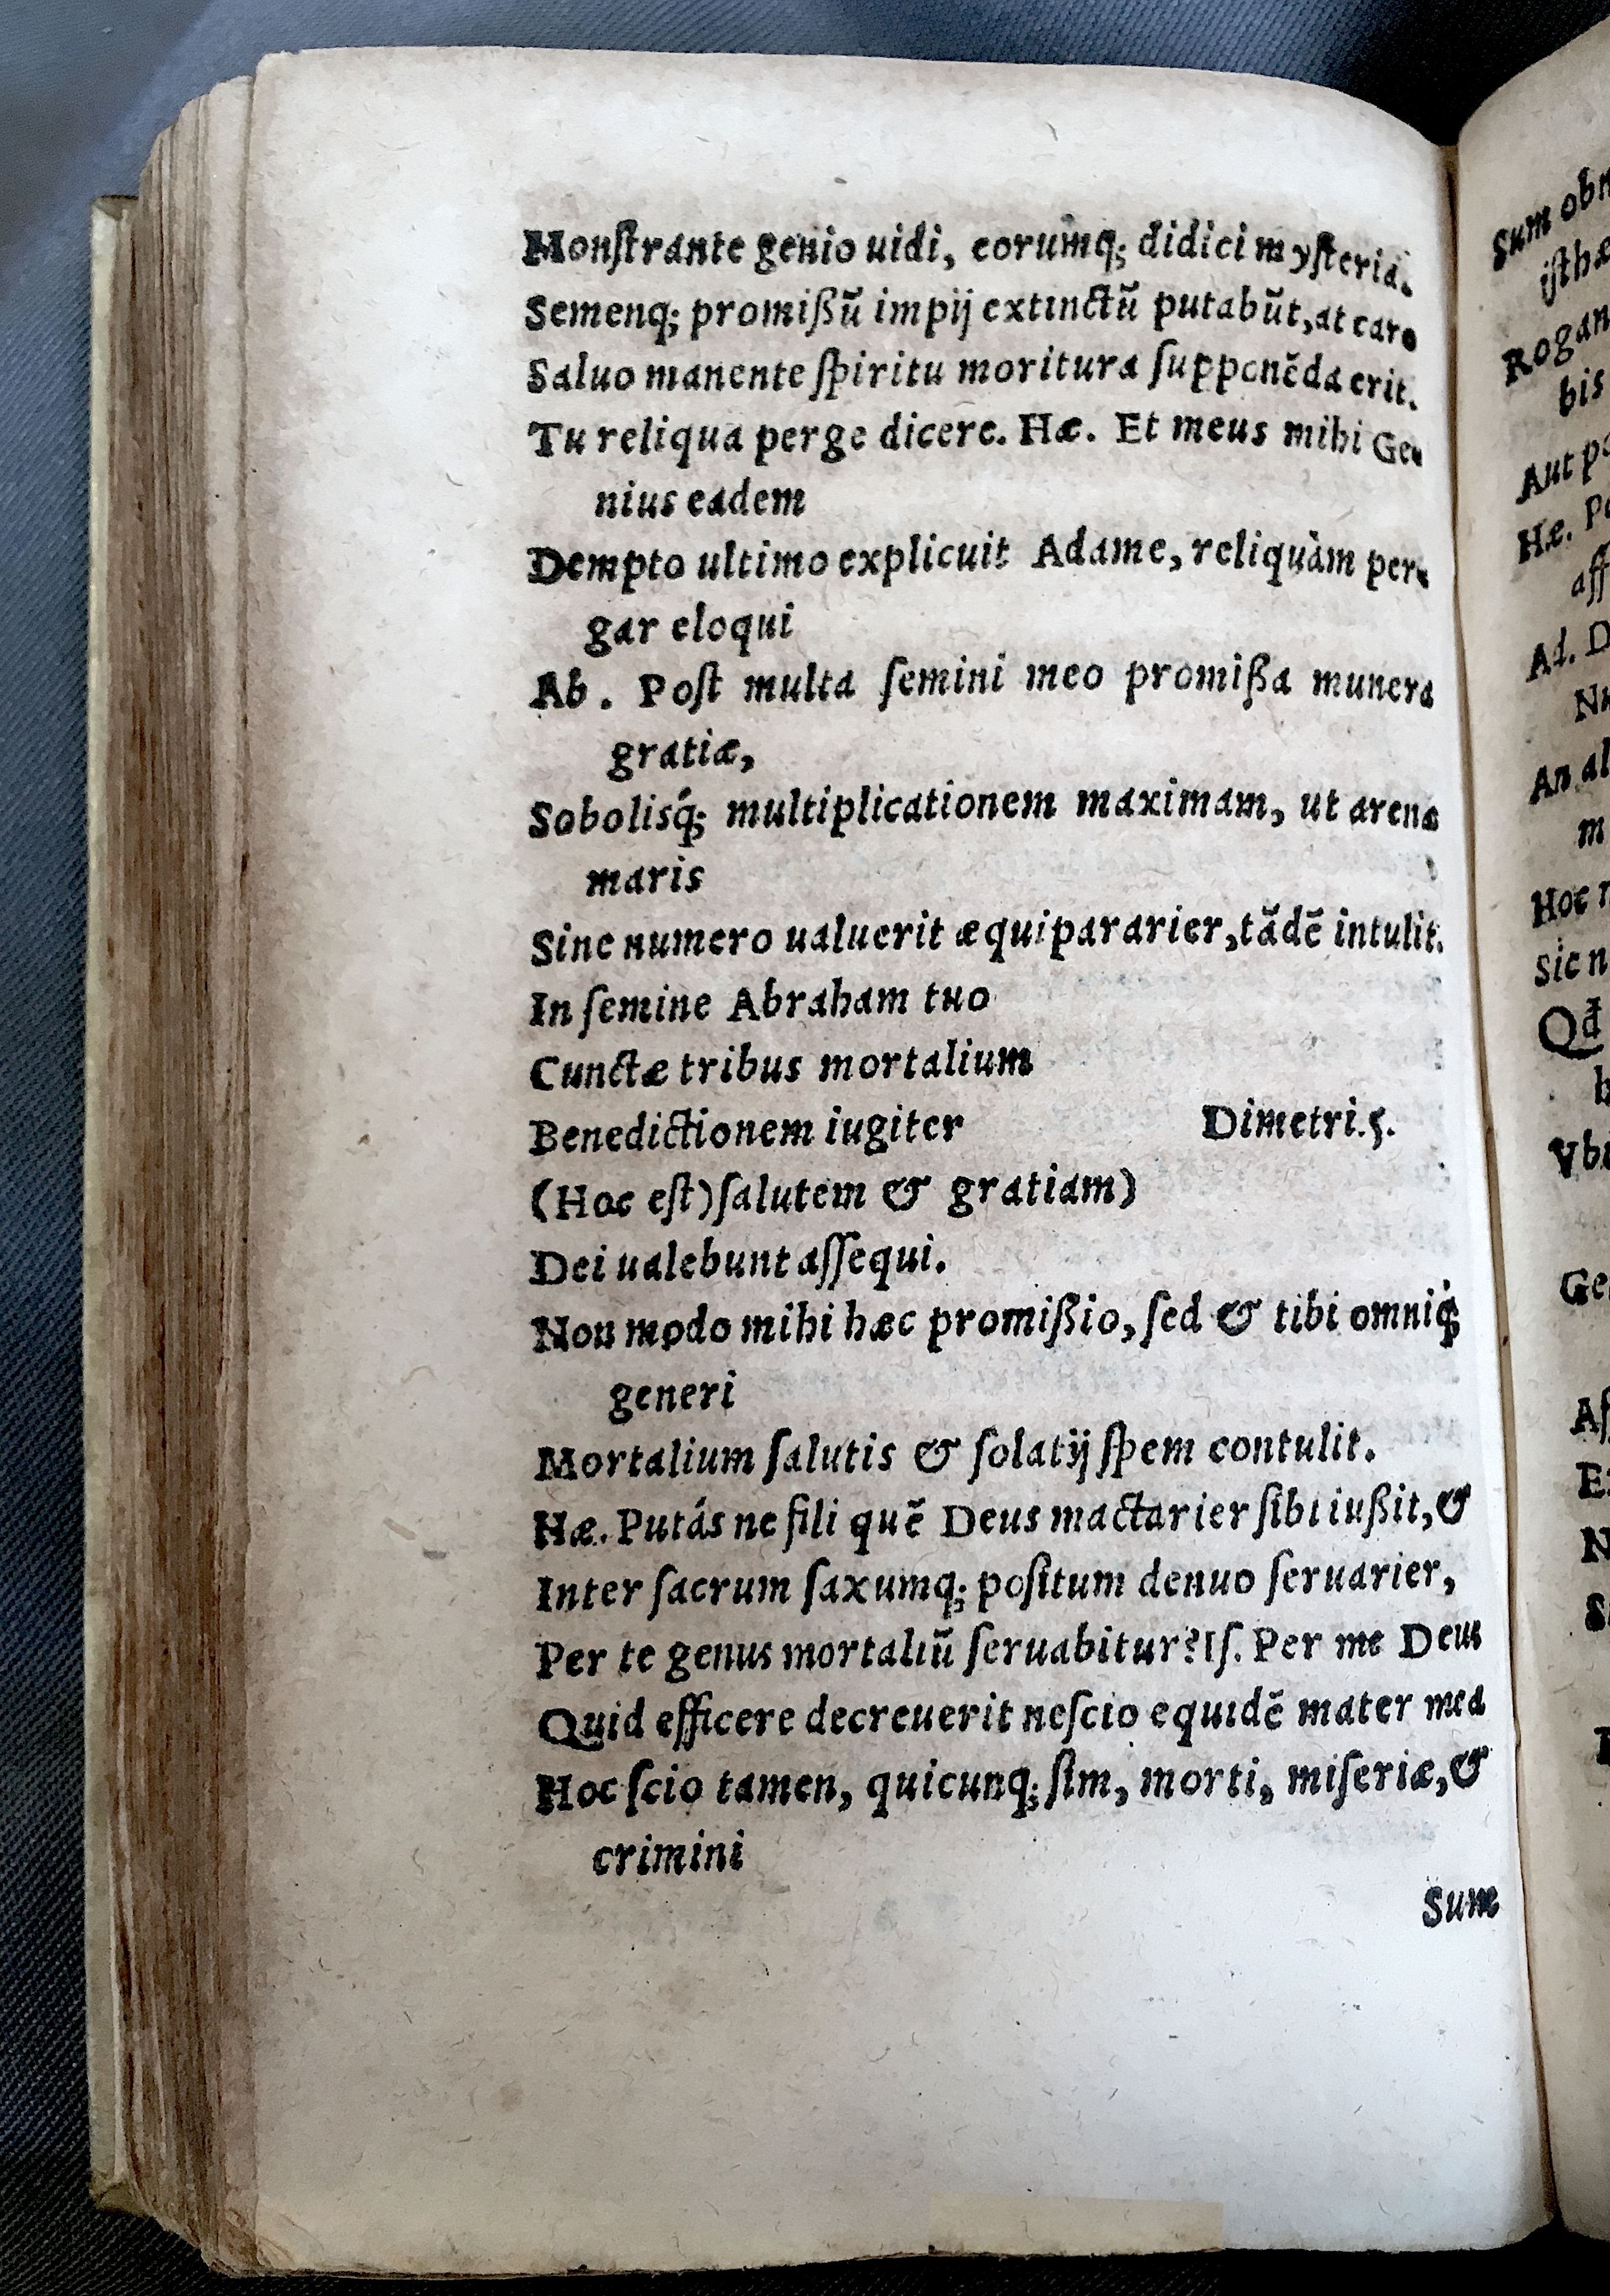 Monſtrante genio uidi, eorumq́; didici myſteria.
Semenq; promißũ impij extinctũ putabũt, at caro
Saluo manente ſpiritu moritura ſupponẽda erit.
Tu reliqua perge dicere. Hæ. Et meus mihi Ge-
nius eadem
Dempto ultimo explicuit Adame, reliquàm per-
gar eloqui
Ab. Poſt multa ſemini meo promißa munera
gratiæ,
Sobolisq́; multiplicationem maximam, ut arenæ
maris
Sine numero ualuerit æquipararier, tãdẽ intulit.
In ſemine Abraham tuo
Cunctæ tribus mortalium
Benedictionem iugiter Dimetri.5.
(Hoc eſt) ſalutem & gratiam)
Dei ualebunt aſſequi.
Non modo mihi hæc promißio, ſed & tibi omniq́;
generi
Mortalium ſalutis & ſolatij ſpem contulit.
Hæ. Putás ne fili quẽ Deus mactarier ſibi iußit, &
Inter ſacrum ſaxumq; poſitum denuo ſeruarier,
Per te genus mortaliũ ſeruabitur? Iſ. Per me Deus
Quid efficere decreuerit neſcio equidẽ mater mea
Hoc ſcio tamen, quicunq; ſim, morti, miſeriæ, &
crimini
Sum
Sum obn
iſthæ
Rogan
bis
Aut
Hæ.
aſſ
Ad. D
An al
m
Hoc
Sic n
Qđ
Ge